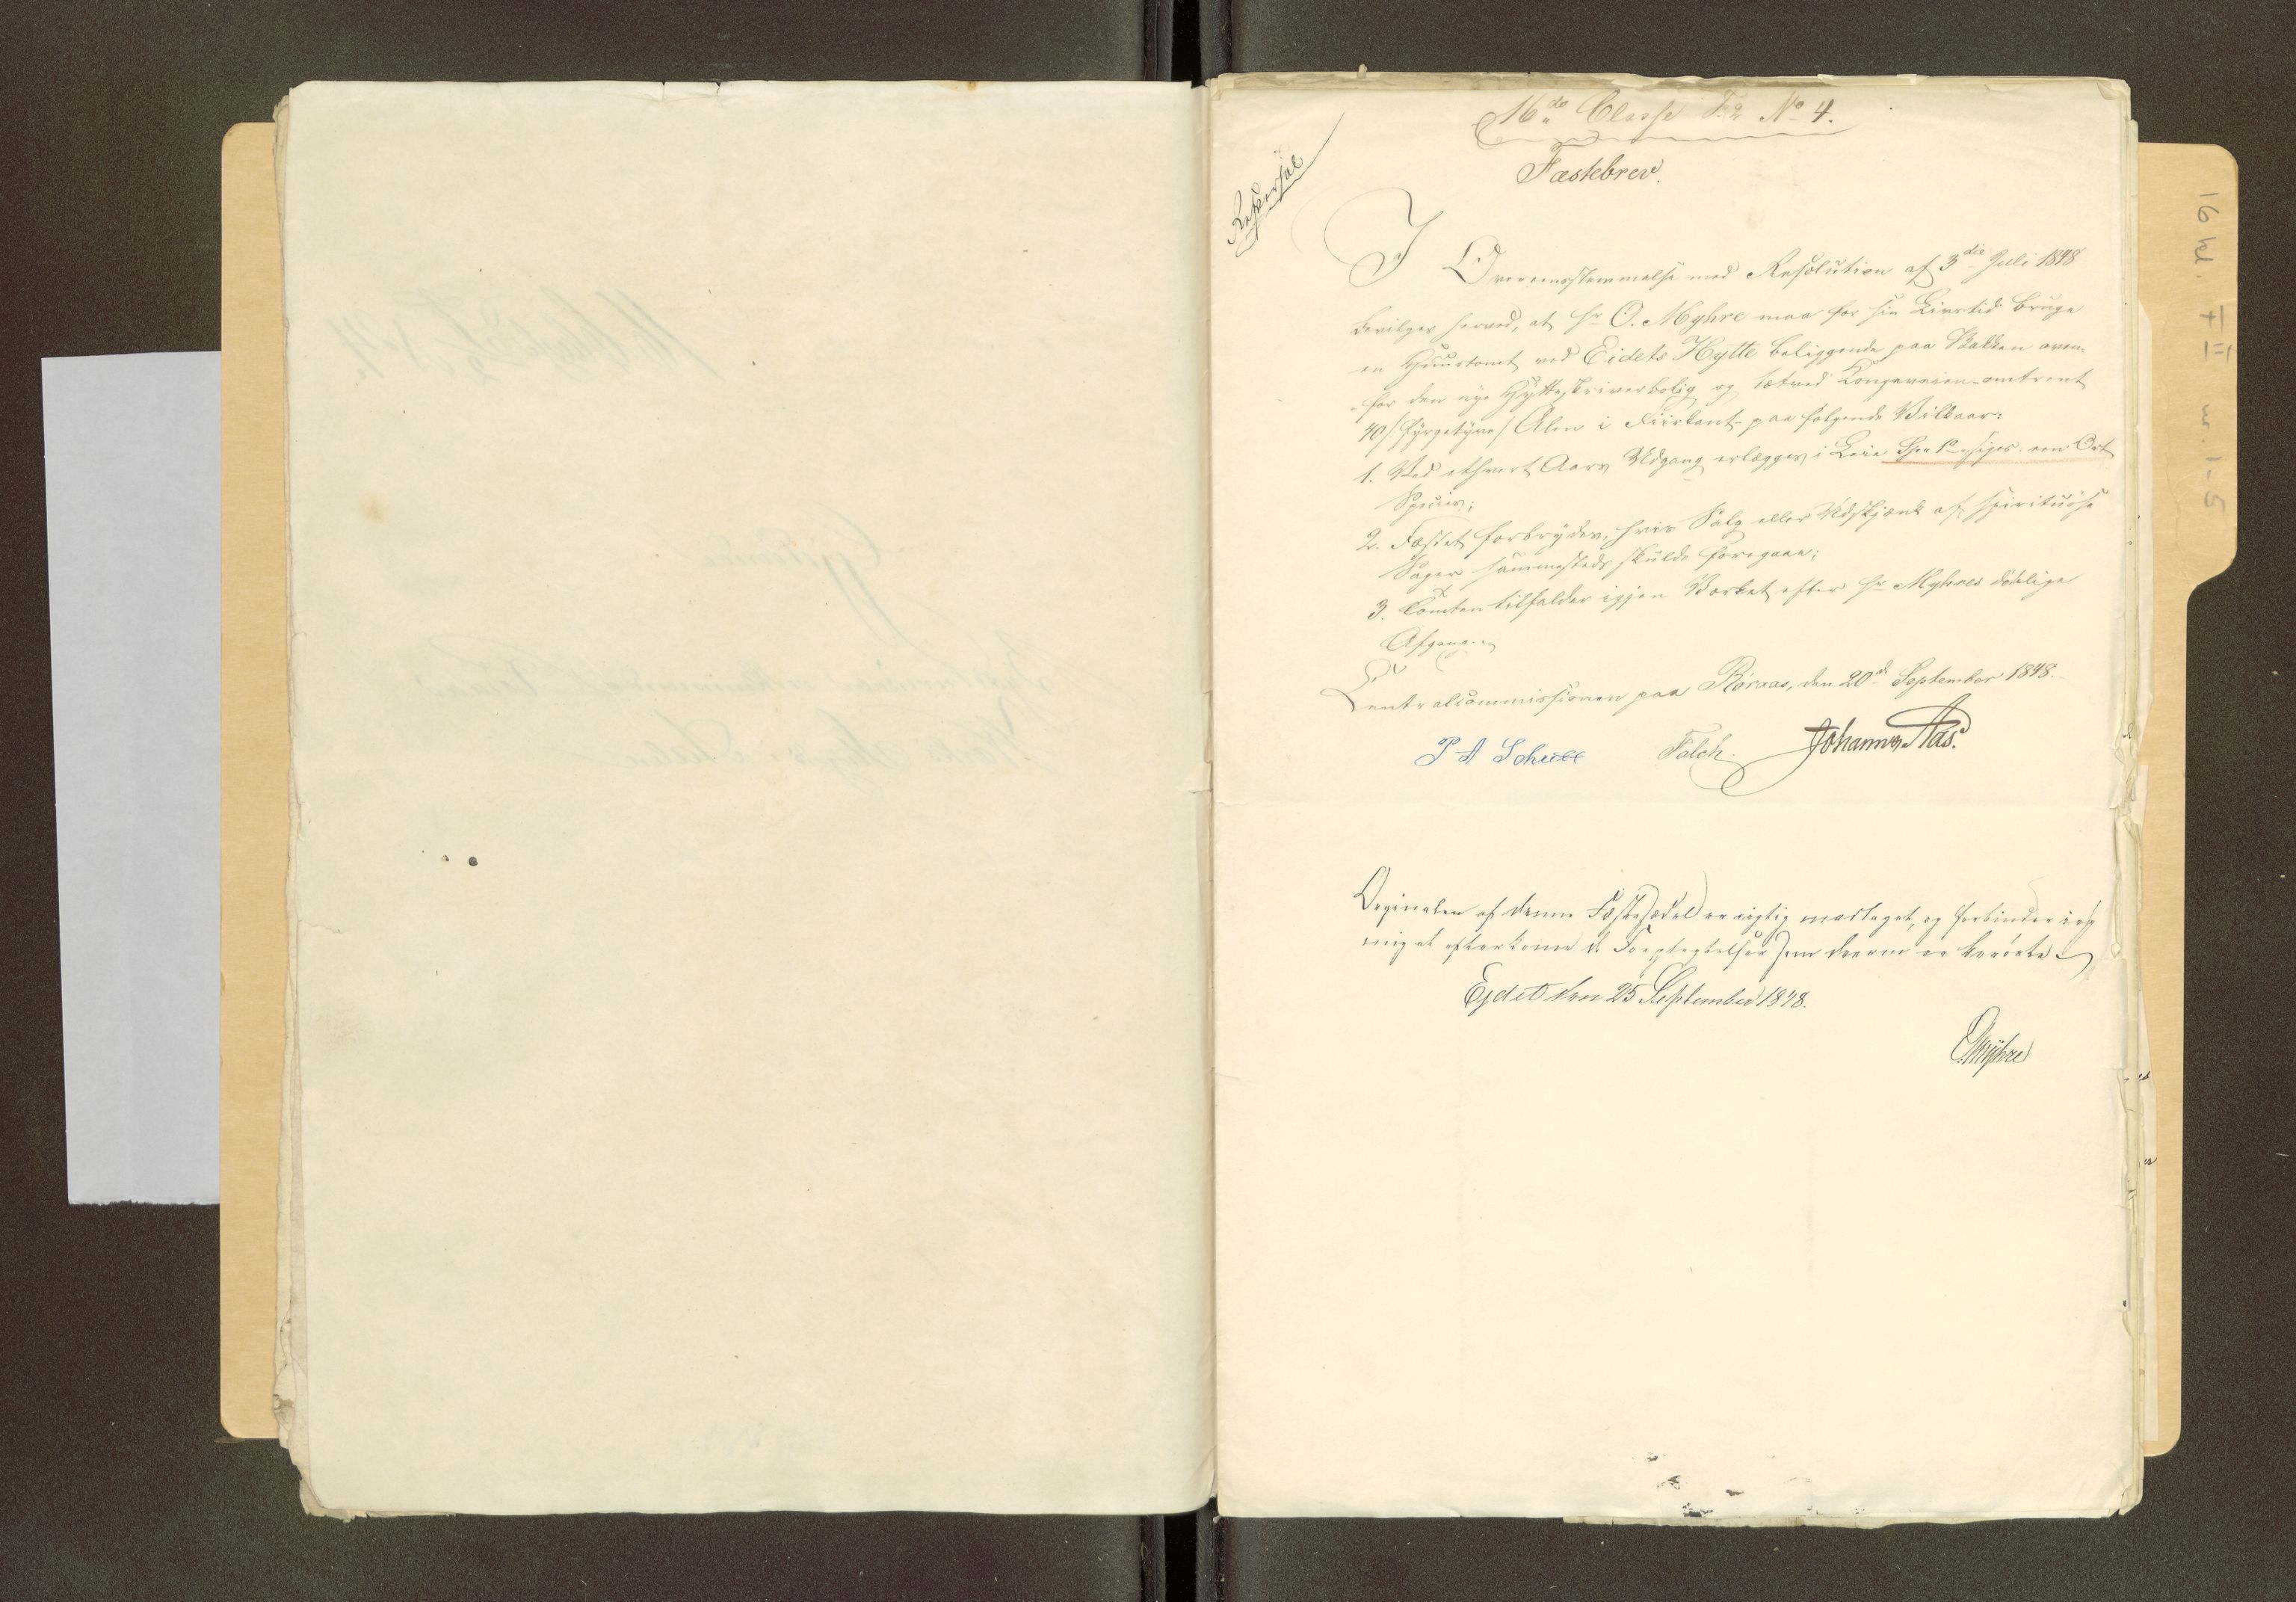 16de Classe F.2 No 4.
Reversal
Fæstebrev.
I Overeensstemmelse med Resolution af 3die Juli 1848
bevilges herved, at Hr O. Myhre maa for sin Livstid bruge
en Huustomt ved Eidets Hytte beliggende paa Bakken oven-
for den nye Hytteskriverbolig og tætved Kongeveien omtrent
40/fyrgetyve/ Alen i Fiirkant paa følgende Vilkaar:
1. Ved ethvert Aars Udgang erlægges i Leie siges een Ort
Species;
2. Fæstet forbrydes, hvis Salg eller Udskjænk af spirituøse
Sager sammesteds skulde foregaae;
3. Tomten tilfalder igjen Værket efter Hr Myhres dødelige
Afgang.
Centralcommissionen paa Röraas, den 20de September 1848.
P A Schult Falch. Johannes Aas.
Orginalen af denne Fæstesædel er rigtig modtaget, og forbinder jeg
mig at efterkomme de Forpligtelser som deri er berörte
Ejdet den 25 September 1848.
O Myhre
16 kl. F II nr. 1-5